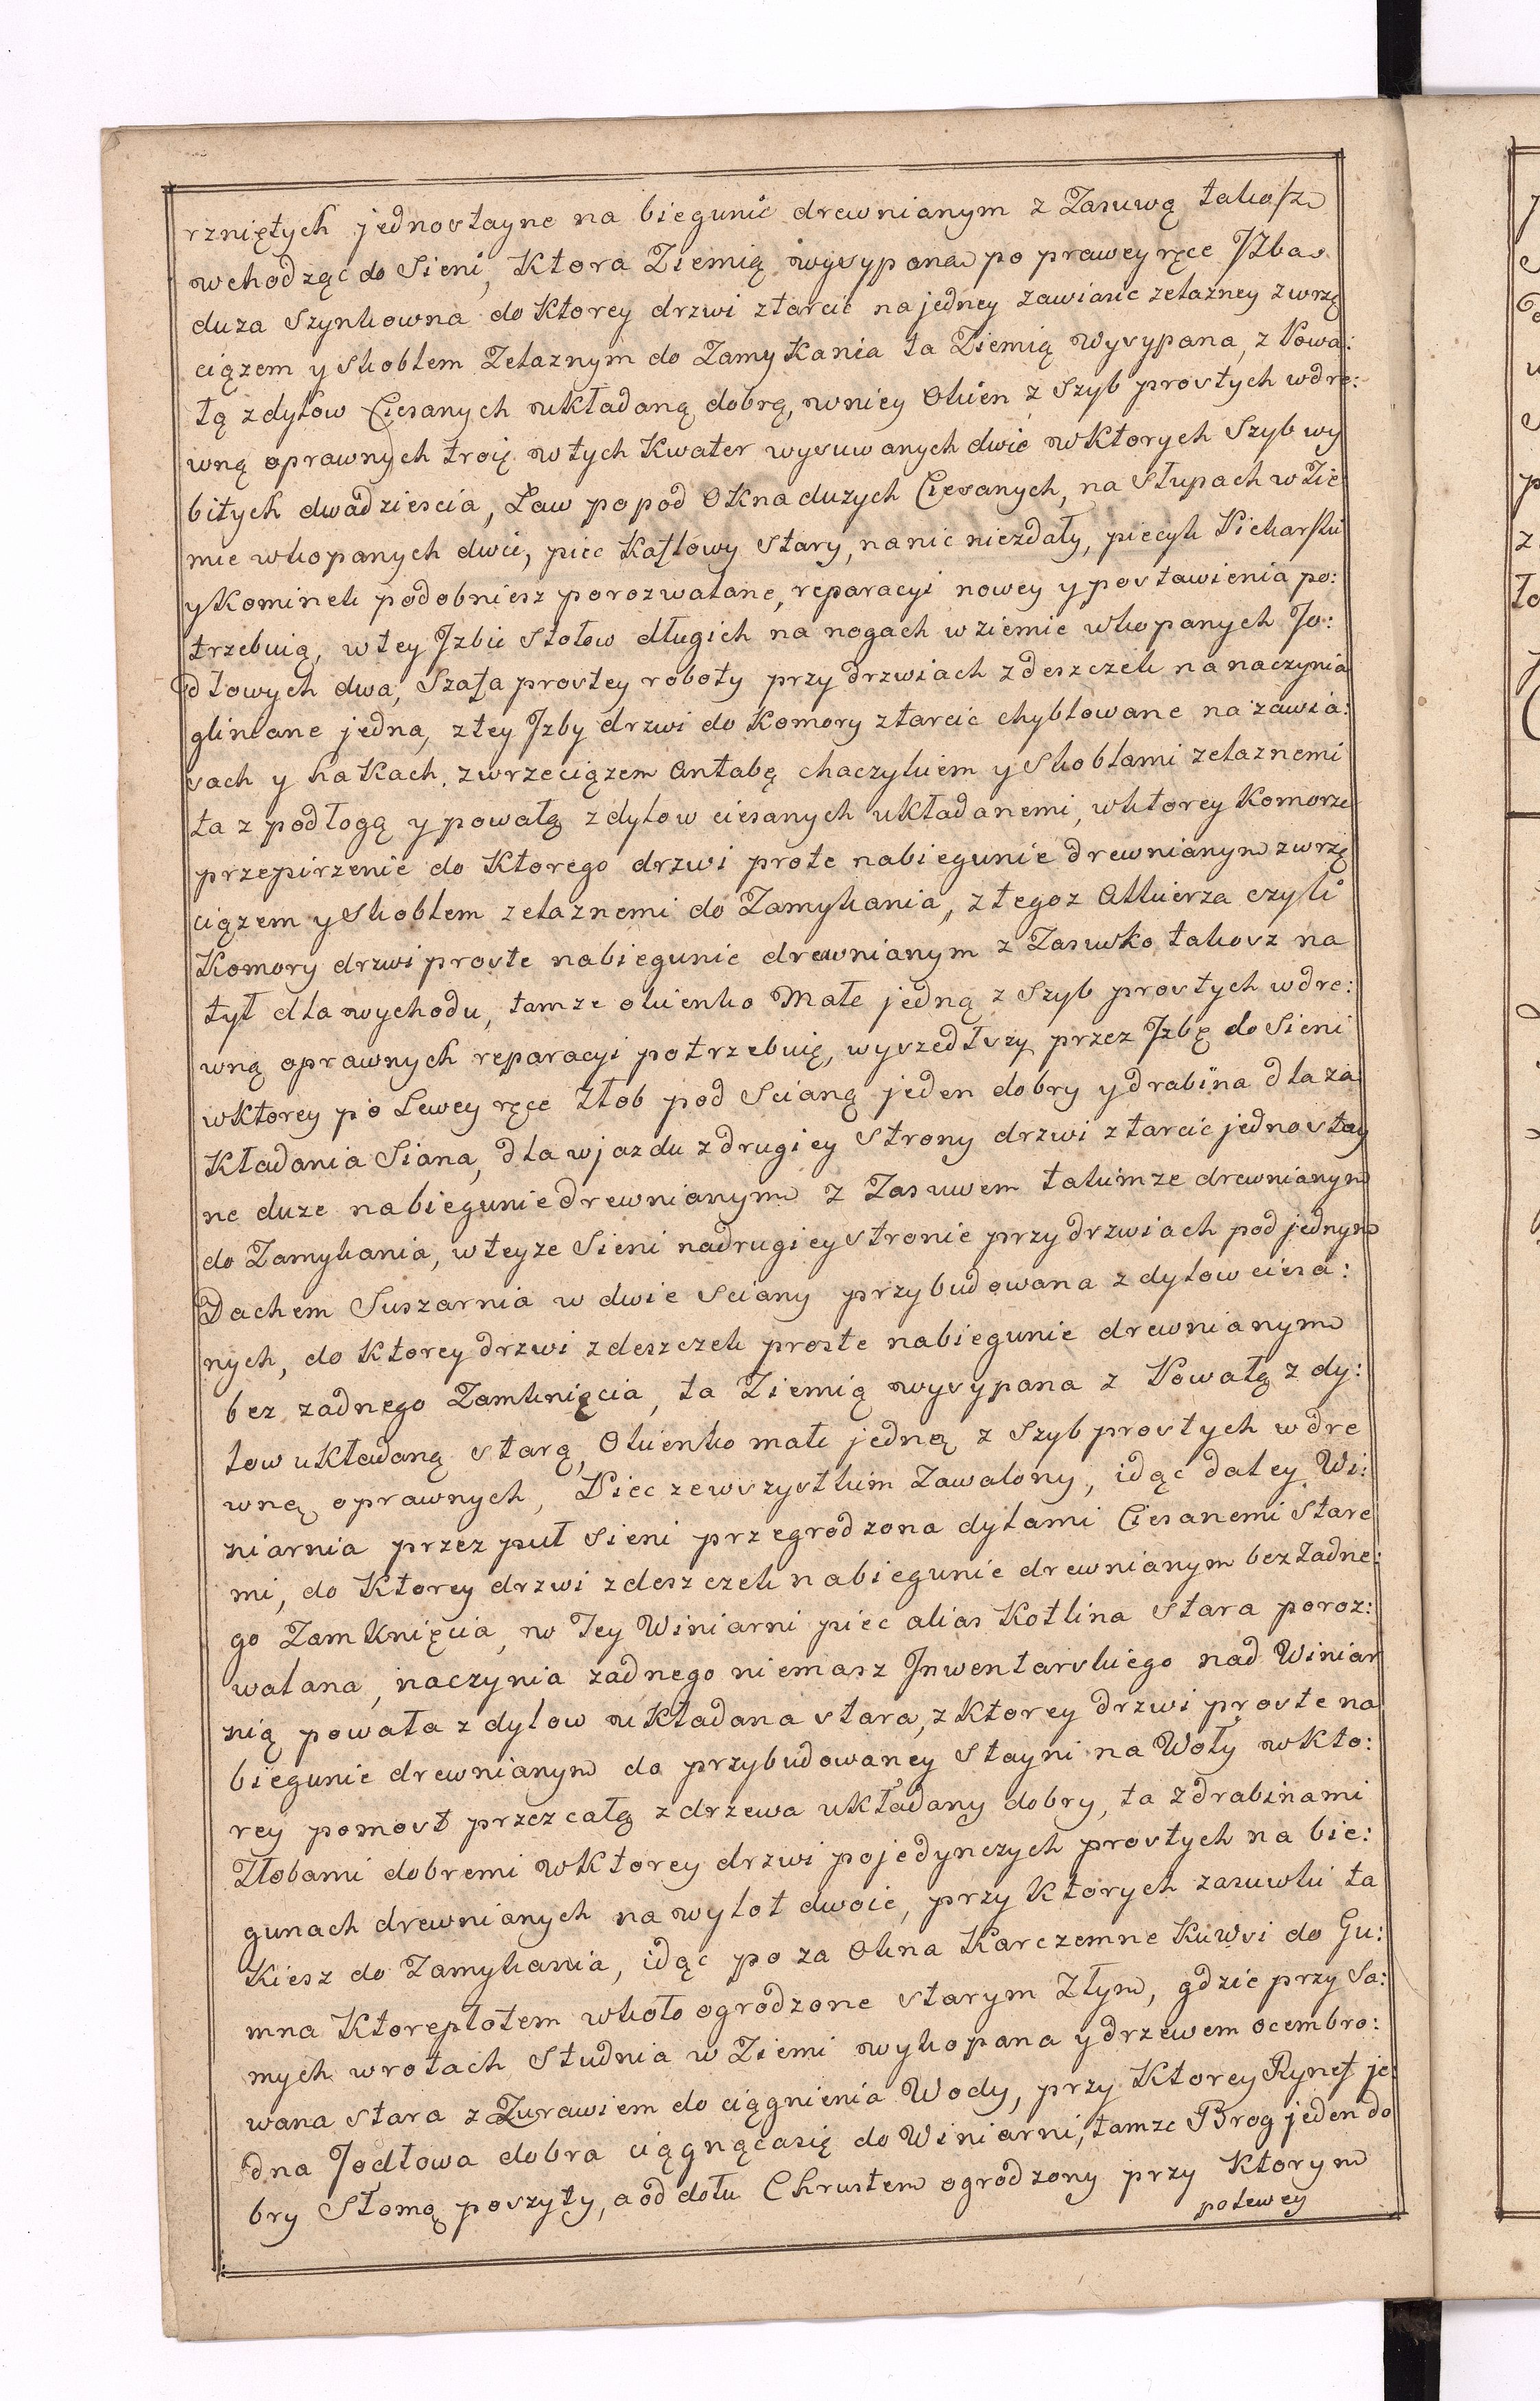 rzniętych jednostayne na biegunie drewnianym z Zasuwą takosz
wchodząc do Sieni, Ktora Ziemią wysypana po prawey ręce Jzba
duza Szynkowna do Ktorey drzwi ztarcic na jedney zawiasie zelazney zwrzę
ciązem y skoblem Zelaznym do Zamykania ta Ziemią wysypana, z Powa:
łą zdylow Ciesanych układaną dobrą, wniey Okien z Szyb prostych wdre:
wną oprawnych troię w tych Kwater wysuwanych dwie w Ktorych Szyb wy
bitych dwadziescia, Ław popod Okna duzych Ciesanych, na Słupach w Zie
mie wkopanych dwie, piec Kaflowy stary, na nic niezdały, piecyk Piekarski
y Kominek podobniesz porozwalane, reparacyi nowey y postawienia po:
trzebuią, w tey Jzbie Stołow długich na nogach w ziemie wkopanych Jo:
dłowych dwa, Szafa prostey roboty przy drzwiach z deszczek na naczynia
gliniane jedna, z tey Jzby drzwi do Komory ztarcic chyblowane na zawia:
sach y hakach, zwrzeciązem Antabą chaczykiem y Skoblami zelaznemi
ta z podłogą y powałą z dylow ciesanych układanemi, w ktorey Komorze
przepirzenie do Ktorego drzwi proste na biegunie drewnianym z wrzę
ciązem y Skoblem zelaznemi do Zamykania, z tegoz Alkierza czyli
Komory drzwi proste na biegunie drewnianym z Zasuwko takosz na
tył dla wychodu, tamze okienko Małe jedną z Szyb prostych w dre:
wną oprawnych reparacyi potrzebuię, wyszedłszy przez Jzbę do Sieni
w Ktorey po Lewey ręce Złob pod Scianą jeden dobry y drabina dla za
Kładania Siana, dla wjazdu z drugiey strony drzwi z tarcic jednostay
ne duze na biegunie drewnianym z Zasuwem takimze drewnianym
do Zamykania, w teyze Sieni na drugiey stronie przy drzwiach pod jednym
Dachem Suszarnia w dwie sciany przybudowana z dylow ciesa:
nych, do Ktorey drzwi z deszczek proste na biegunie drewnianym
bez zadnego Zamknięcia, ta Ziemią wysypana z Powałą z dy:
low układaną starą, Okienko małe jedną z Szyb prostych w dre
wną oprawnych, Piec zewszystkim Zawalony, idąc daley Wi:
niarnia przez puł sieni przegrodzona dylami Ciesanemi stare
mi, do Ktorey drzwi z deszczek na biegunie drewnianym bez Zadne:
go Zamknięcia, w Tey Winiarni piec alias Kotlina stara poroz:
walana, naczynia zadnego niemasz Jnwentarskiego nad Winiar
nią powała z dylow układana stara, z Ktorey drzwi proste na
biegunie drewnianym do przybudowaney Stayni na Woły w Kto:
rey pomost przez całą z drzewa układany dobry, ta z drabinami
Złobami dobremi w Ktorey drzwi pojedynczych prostych na bie:
gunach drewnianych na wylot dwoie, przy Ktorych zasuwki ta
Kiesz do Zamykania, idąc po za Okna Karczemne Kuwsi do Gu:
mna Ktore płotem wkoło ogrodzone starym Złym, gdzie przy Sa:
mych wrotach Studnia w Ziemi wykopana y drzewem ocembro:
wana stara z Zurawiem do ciągnienia Wody, przy Ktorey Rynef je:
dna Jodłowa dobra ciągnącasię do Winiarni, tamze Brog jeden do
bry Słomą poszyty, a od dołu Chrustem ogrodzony przy Ktorym
polewey